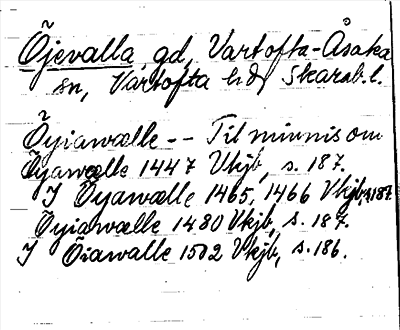 Õjevalla gd, Vartofta-Åsaka
sn, Vartofta hd Skarab.l.
Õyiawælle -- Til minnis om
Öyawælle 1447 Vkjb, s. 187.
I Öyawælle 1465, 1466 Vkjb, s. 187.
Öyiawælle 1480 Vkjb, s. 187.
I Öiawalle 1502 Vkjb, s. 186.